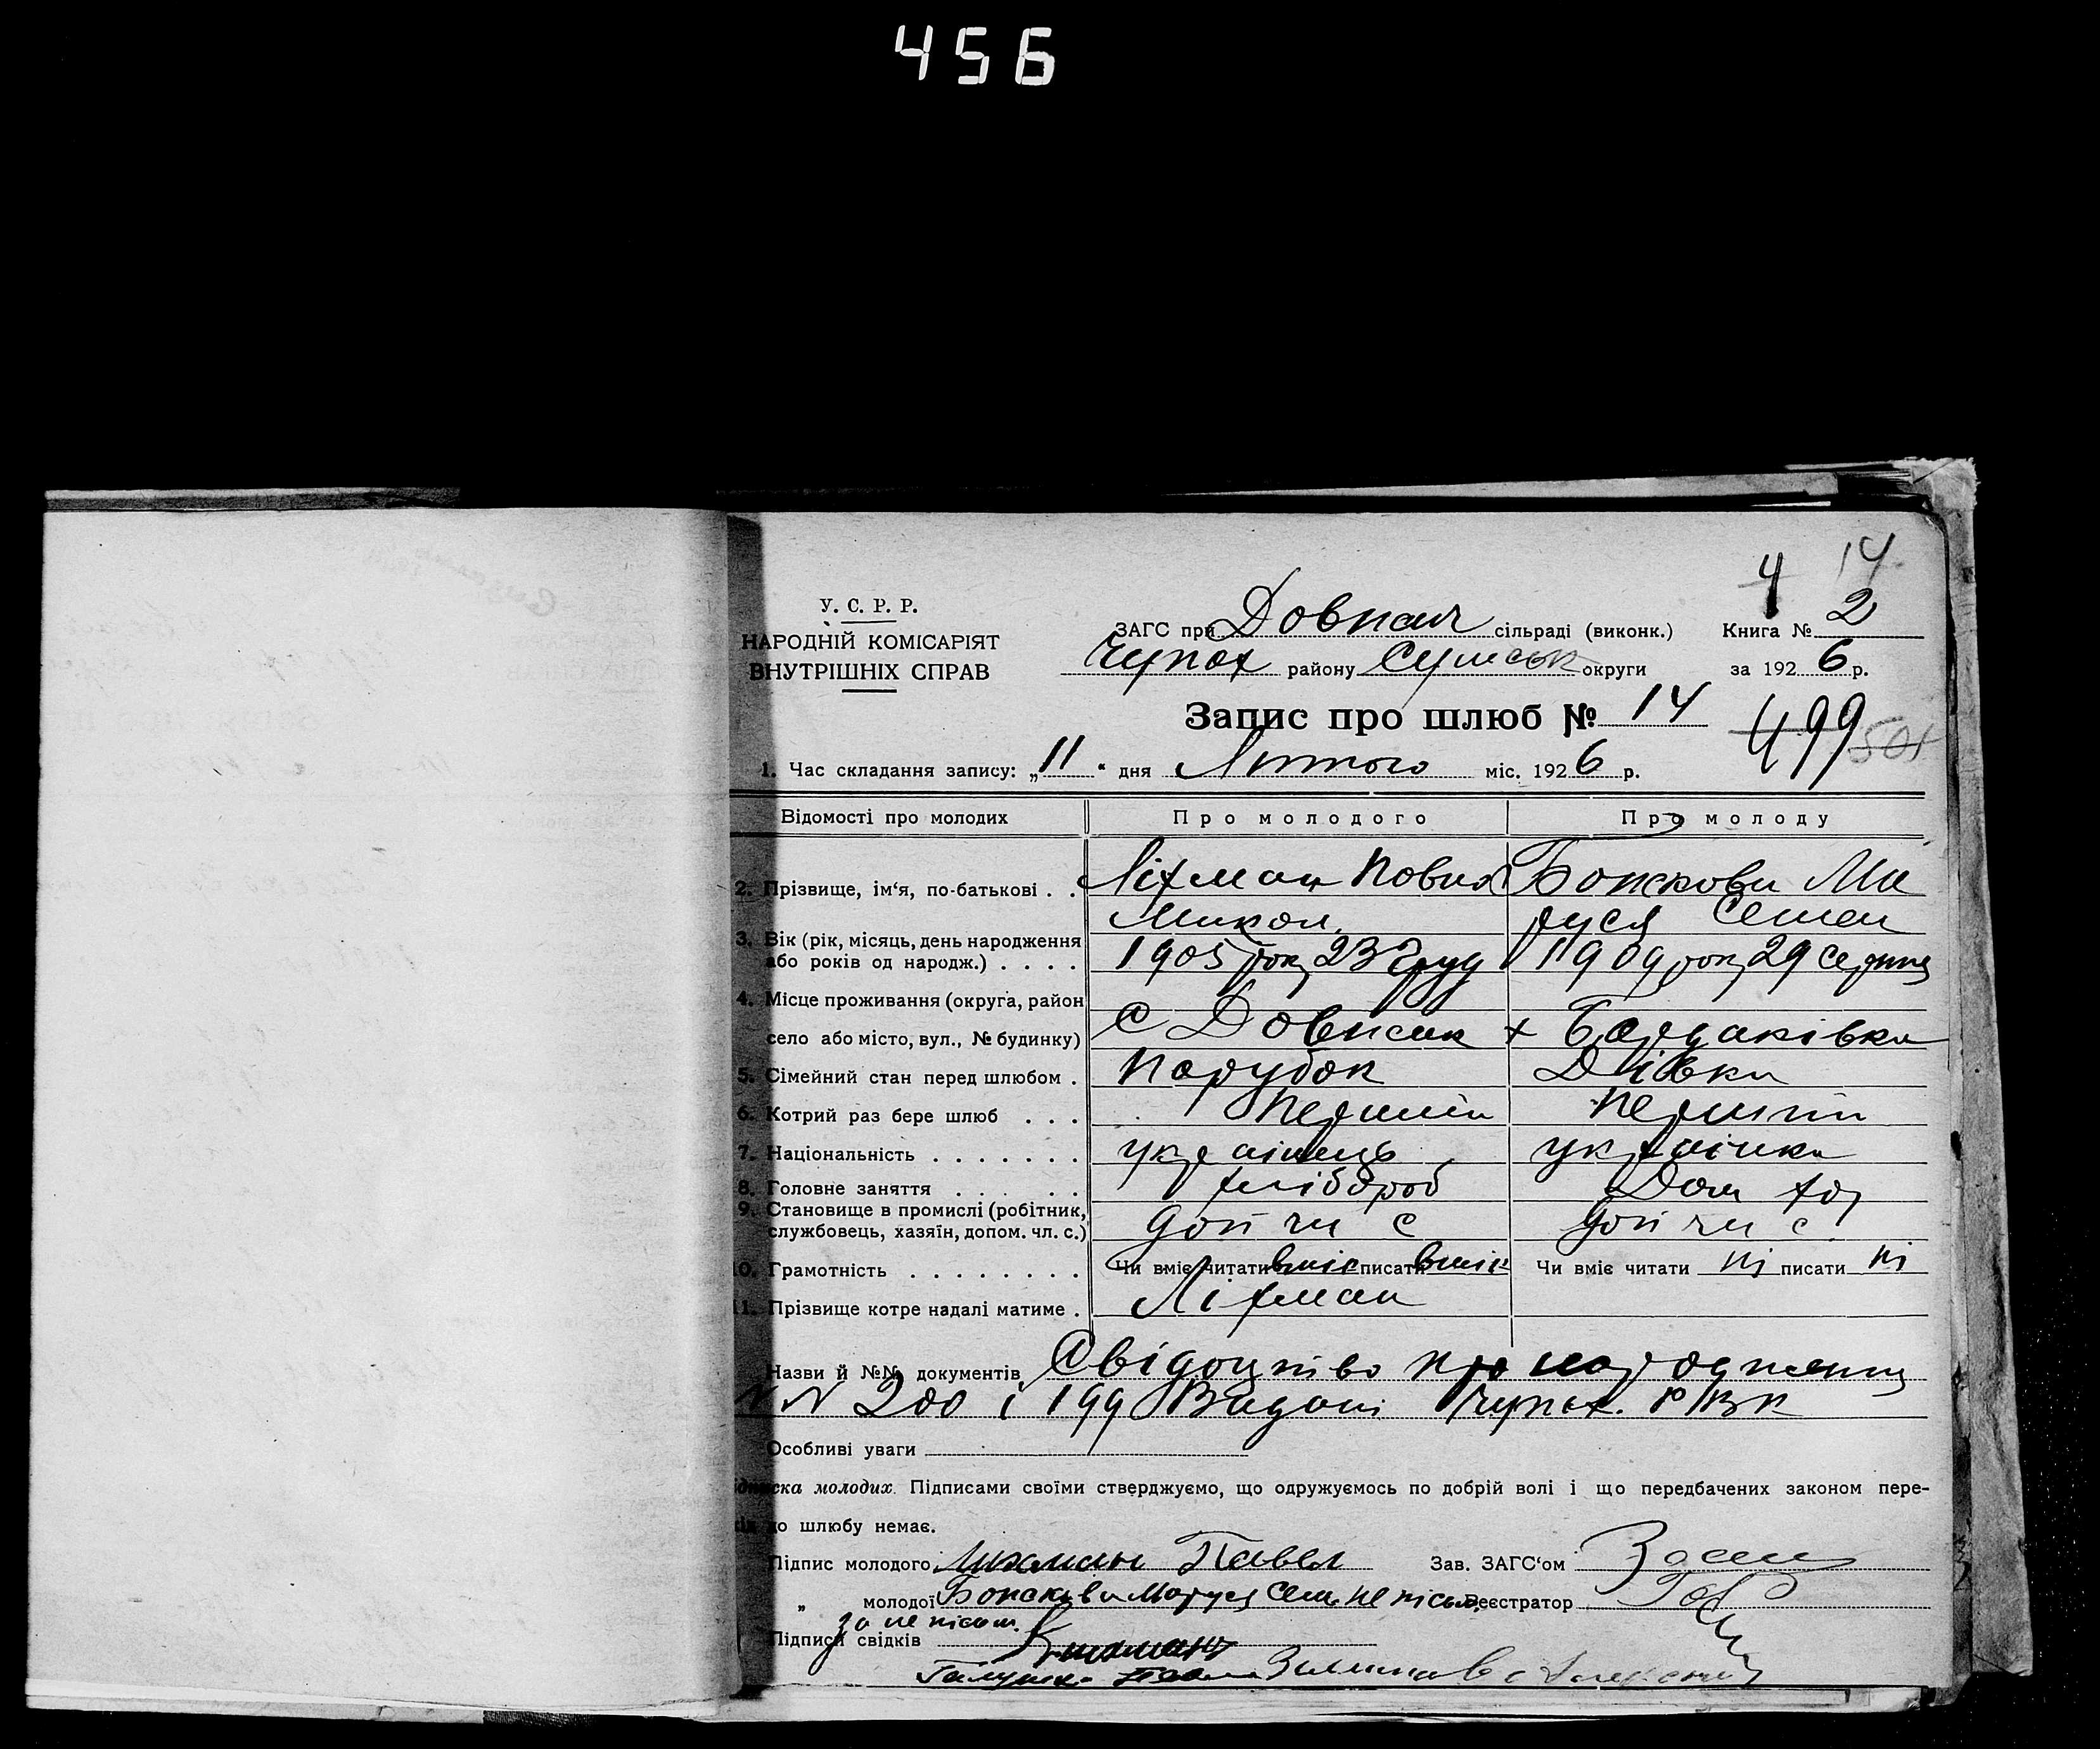 456
14.
4
У. С. Р. Р.
НАРОДНІЙ КОМІСАРІЯТ
ВНУТРІШНІХ СПРАВ
ЗАГС при сільраді (виконк.) Книга № 2
Чупах району Сумськ округи за 1926 р.
Запис про шлюб № 14
499 501
1. Час складання запису: „11“ дня Лютого міс. 1926 р.
Відомості про молодих Про молодого Про молоду
2. Прізвище, ім‘я, по-батькові . . Ліхман Павло Божкова Ма
Микол. руся Семен
3. Вік (рік, місяць, день народження
або років од народж.) . . . . 1905 року 23 Груд 1909 року 29 Серпня
4. Місце проживання (округа, район
село або місто, вул., № будинку) С х
5. Сімейний стан перед шлюбом . Парубок Дівка
6. Котрий раз бере шлюб . . . Перший Перший
7. Національність . . . . . . . українець українка
8. Головне заняття . . . . . . хлібороб Дом хоз
9. Становище в промислі (робітник,
службовець, хазяїн, допом. чл. с.) доп чл с доп чл с
10. Грамотність . . . . . . . . Чи вміє читати вміє писати вміє Чи вміє читати ні писати ні
11. Прізвище котре надалі матиме . Ліхман
Назви й №№ документів Свідоцтво про народження
N N 200 і 199 Видані Чупах. РВК
Особливі уваги
молодих. Підписами своїми стверджуємо, що одружуємось по добрій волі і що передбачених законом пере-
до шлюбу немає.
Підпис молодого Лихман Павел Зав. ЗАГС‘ом
„ молодої Божкова Маруся Сем. не письм. Реєстратор
за не письм.
Підписи свідків